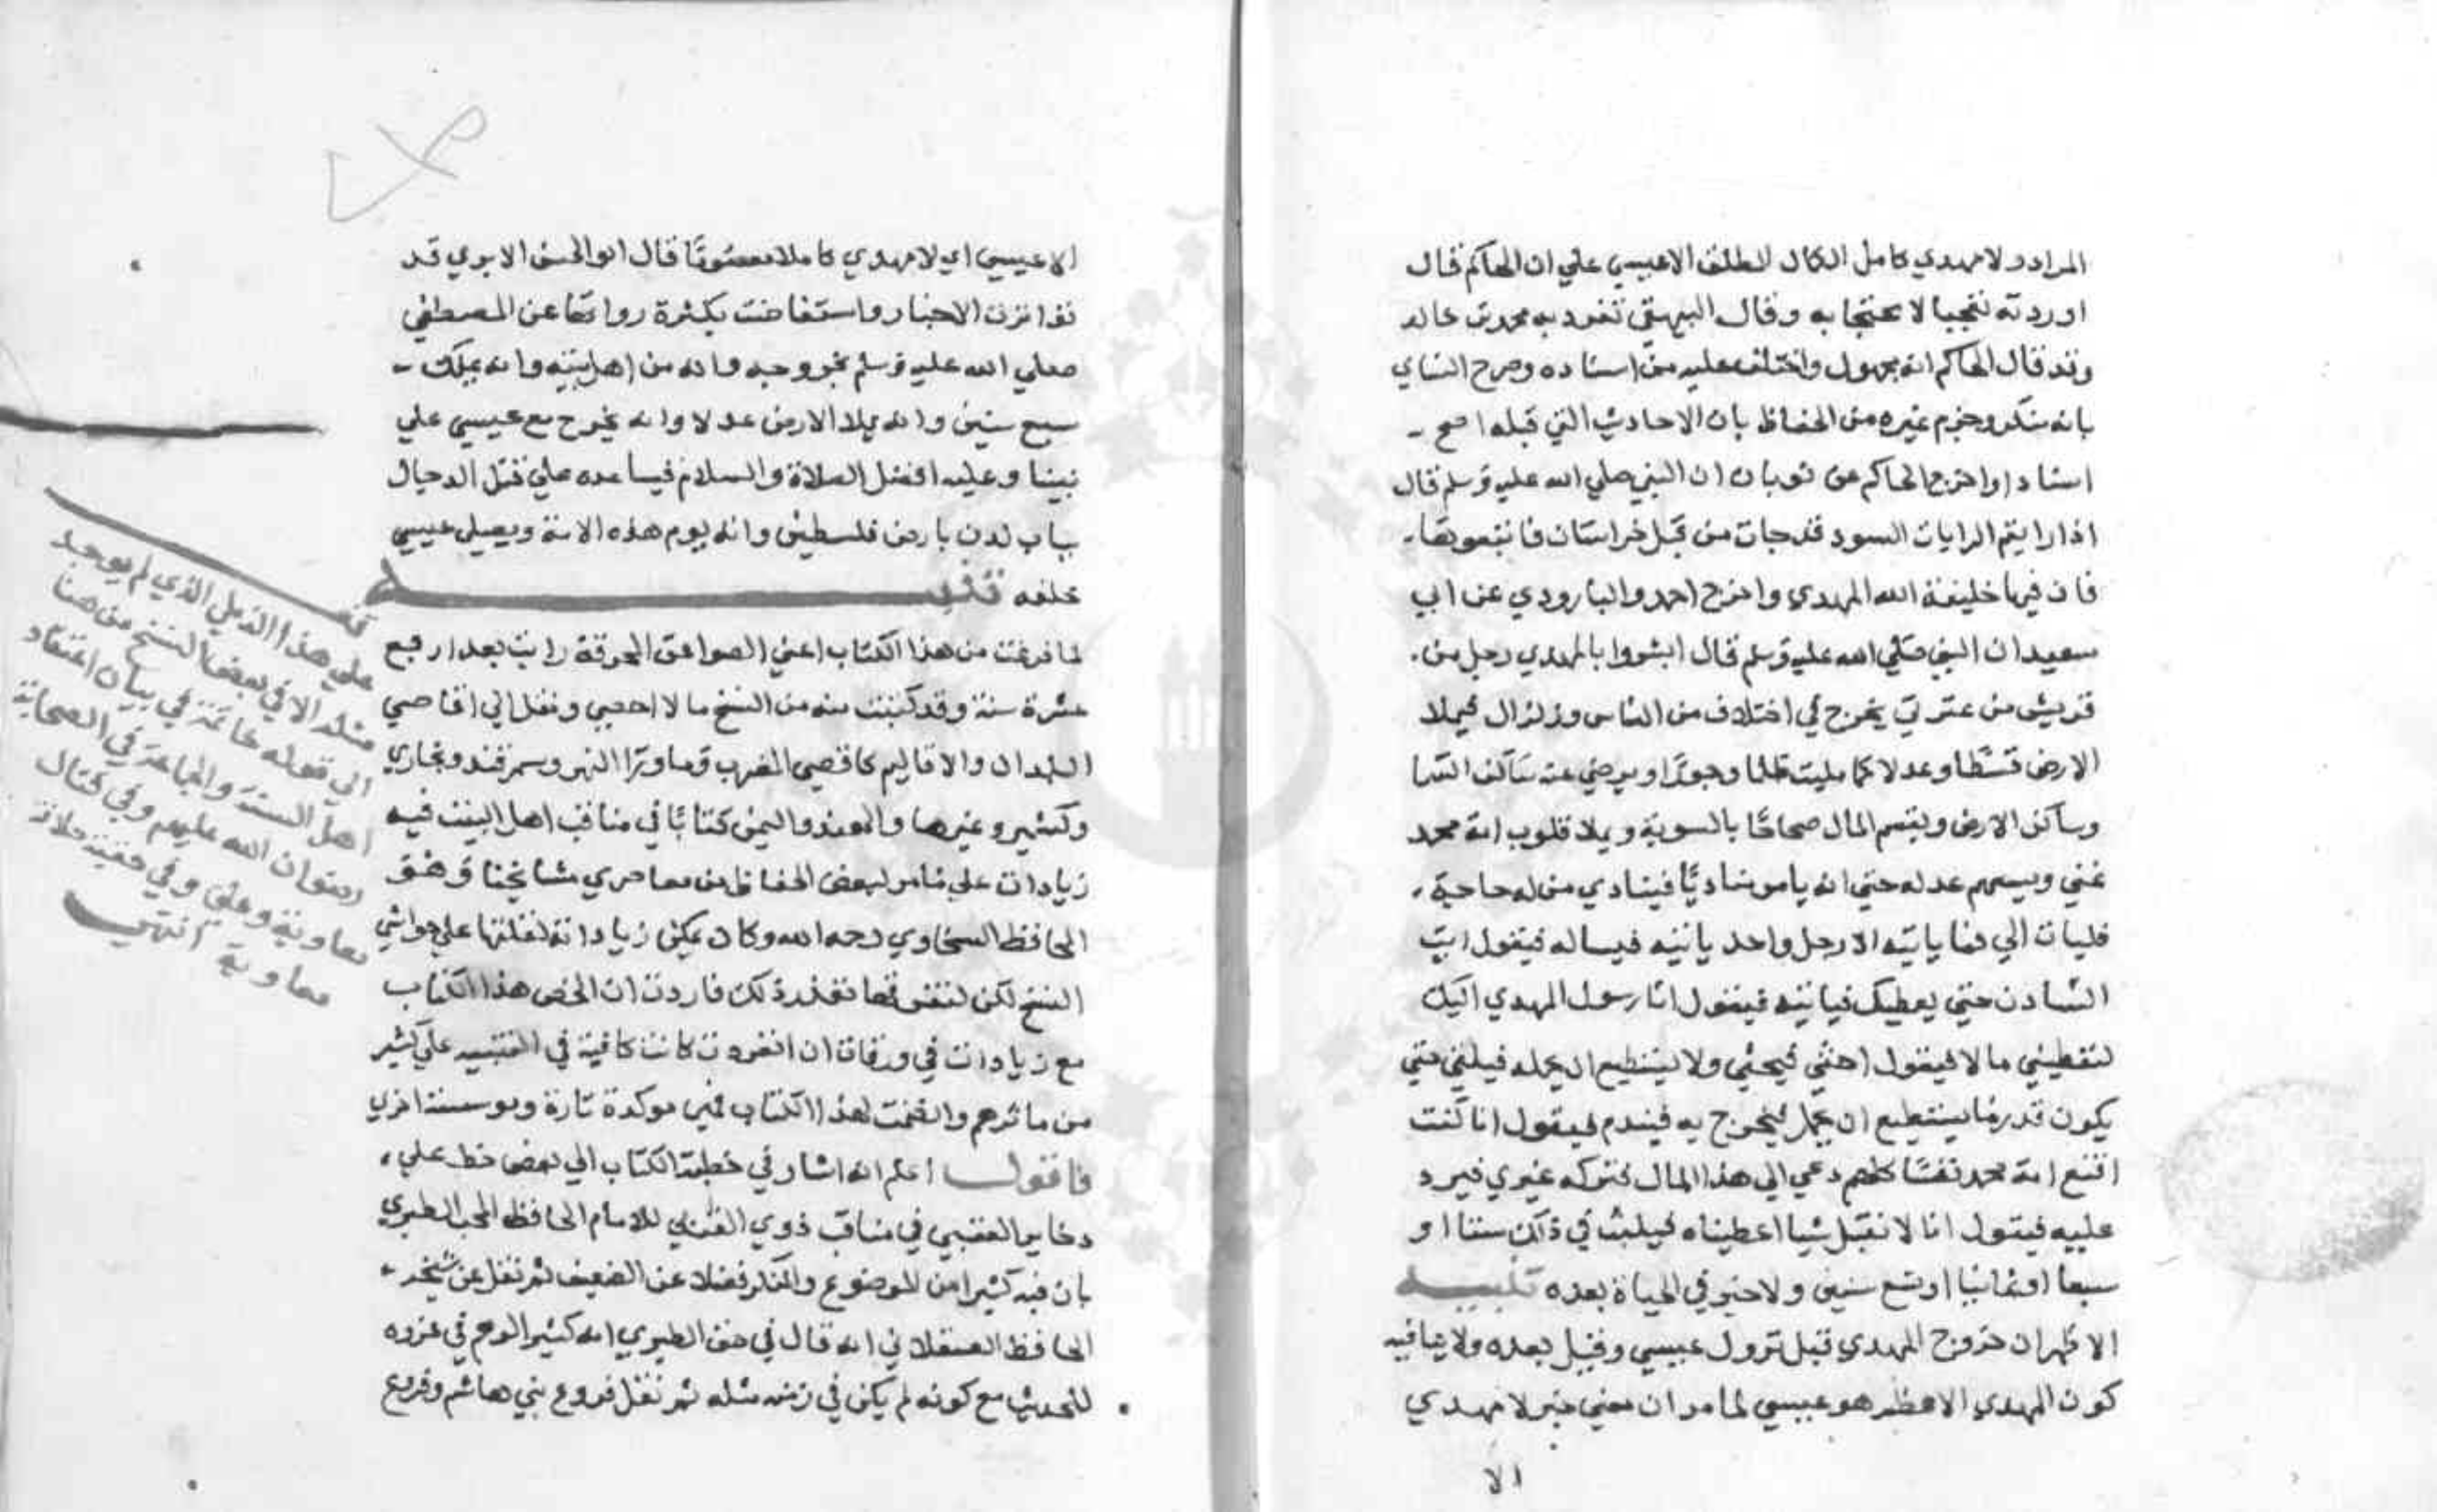 المراد ولا مهدي كامل الكمال المطلق الا عيسي علي ان الحاكم قال
اوردته تعجبا لا محتجا به وقال البيهقي تفرد به محمد بن خالد
وقد قال الحاكم انه مجهول واختلف عليه من اسناده وصرح النساي
بانه منكر وجزم غيره من الحفاظ بان الاحاديث التي قبله اصح
اسنادا واخرج الحاكم عن ثوبان ان النبي صلي الله عليه وسلم قال
اذا رايتم الرايات السود قد جات من قبل خراسان فاتبعوها
فان فيها خليفة الله المهدي واخرج احمد والبارودي عن ابي
سعيد ان النبي صلي الله عليه وسلم قال ابشروا بالمهدي رجل من
قريش من عترتي يخرج في اختلاف من الناس وزلزال فيملا
الارض قسطا وعدلا كما مليت ظلما وجورا ويرضي عنه ساكن السما
وساكن الارض ويقسم المال صحاحا بالسوية ويملا قلوب امة محمد
غني ويسعهم عدله حتي انه يامر مناديا فينادي من له حاجة
فليات الي فما ياتيه الا رجل واحد ياتيه فيساله فيقول ايت
السادن حتي يعطيك فياتيه فيقول انا رسول المهدي اليك
لتعطيني مالا فيقول احثي فيحثي ولا يستطيع ان يحمله فيلقي حتي
يكون قدر ما يستطيع ان يحمل فيخرج به فيندم فيقول انا كنت
اقنع امة محمد نفسا كلهم دعي الي هذا المال فتركه غيري فيرد
عليه فيقول انا لا نقبل شيا اعطيناه فيلبث في ذلك ستا او
سبعا او ثمانيا او تسع سنين ولا خير في الحياة بعده تنبيه
الاظهر ان خروج المهدي قبل نزول عيسي وقيل بعده ولا ينافيه
كون المهدي الاعظم هو عيسي لما مر ان معني خبر لا مهدي
الا
الا عيسي اي لا مهدي كاملا معصوما قال ابو الحسن الابري قد
تواترت الاخبار واستفاضت بكثرة رواتها عن المصطفي
صلي الله عليه وسلم بخروجه وانه من اهل بيته وانه يملك
سبع سنين وانه يملا الارض عدلا وانه يخرج مع عيسي علي
نبينا وعليه افضل الصلاة والسلام فيساعده علي قتل الدجال
بباب لدن بارض فلسطين وانه يوم هذه الامة ويصلي عيسي
خلفه
لما فرغت من هذا الكتاب اعني الصواعق المحرقة رايت بعد اربع
عشرة سنة وقد كتبت منه من النسخ ما لا احصي ونقل الي اقاصي
البلدان والاقاليم كاقصي المغرب وما ورا النهر وسمرقند وبخاري
وكشير وغيرها والهند واليمن كتابا في مناقب اهل البيت فيه
زيادات علي ما مر لبعض الحفاظ من معاصري مشايخنا وهو
الحافظ السخاوي رحمه الله وكان يمكن زياداته لنقلتها علي حواشي
النسخ لكن لتفرقها تعذر ذلك فاردت ان الخص هذا الكتاب
مع زيادات في ورقات ان انفردت كانت كافية في التنبيه علي كثير
من ماثرهم وان ضمت لهذا الكتاب فهي موكدة تارة وموسسة اخري
فاقول اعلم انه اشار في خطبة الكتاب الي بعض حط علي
دخاير العقبي في مناقب ذوي القربي للامام الحافظ المحب الطبري
بان فيه كثيرا من الموضوع والمنكر فضلا عن الضعيف ثم نقل عن شيخه
الحافظ العسقلاني انه قال في حق الطبري انه كثير الوهم في عزوه
للحديث مع كونه لم يكن في زمنه مثله ثم نقل فروع بني هاشم وفروع
علي هذا الذيل الذي لم يوجد
مثله الا في بعض النسخ من هنا
الي قوله خاتمة في بيان اعتقاد
اهل السنة والجماعة في الصحابة
رضوان الله عليهم وفي قتال
معاوية وعلي وفي حقية خلافة
معاوية انتهي